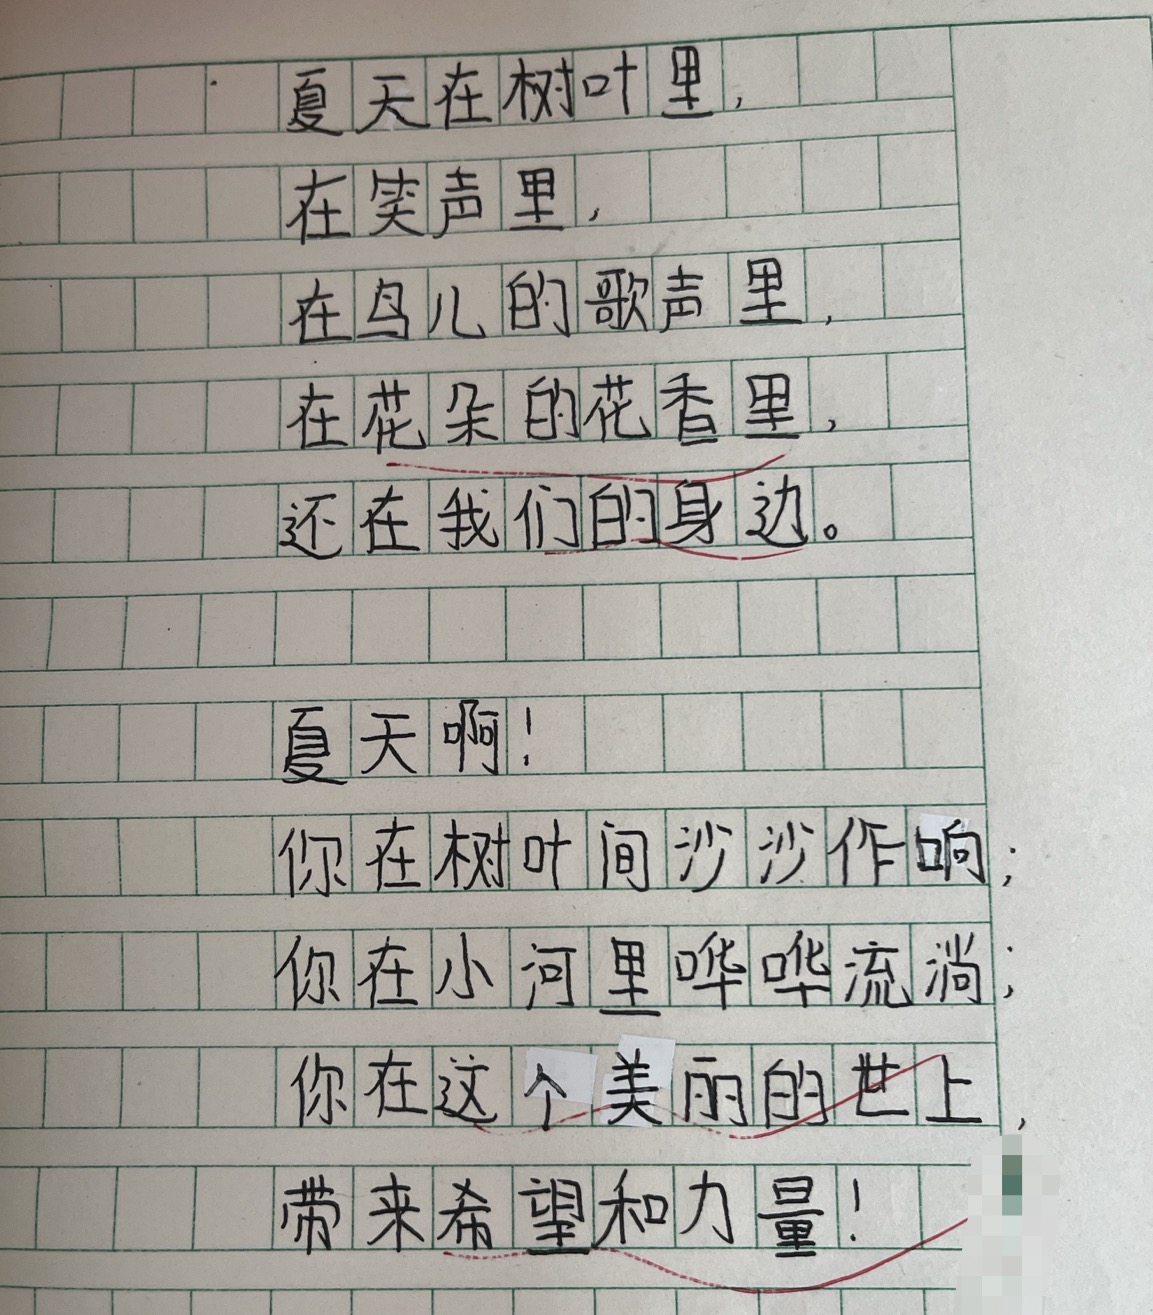 夏天在树叶里，
在笑声里，
在鸟儿的歌声里，
在花朵的花香里，
还在我们的身边。
夏天啊！
你在树叶间沙沙作响；
你在小河里哗哗流淌；
你在这个美丽的世上，
带来希望和力量！